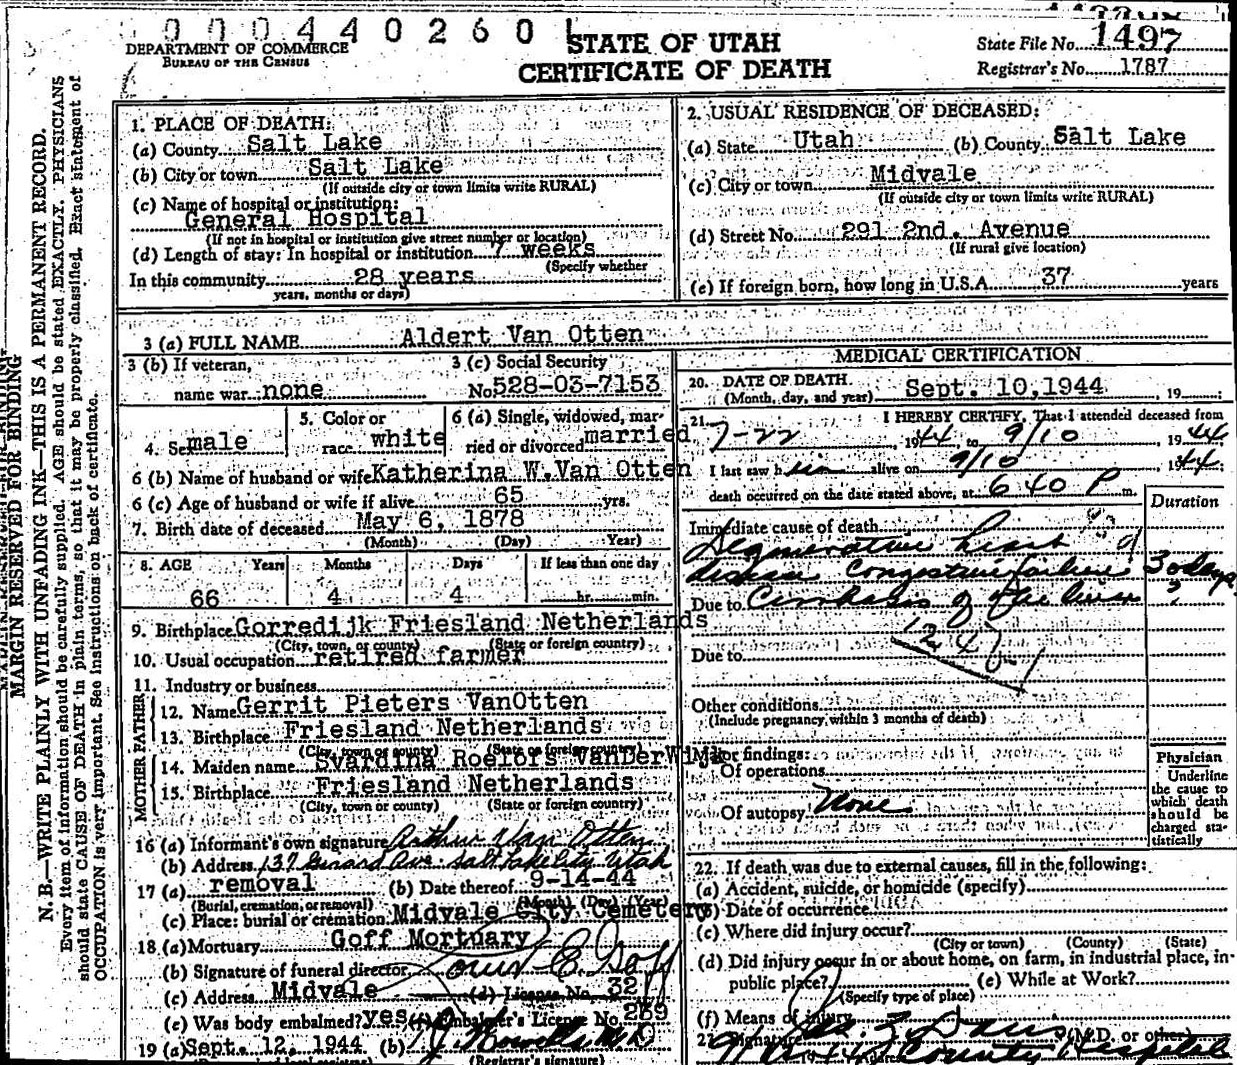 0004402601
STATE OF UTAH
CERTIFICATE OF DEATH
DEPARTMENT OF COMMERCE
BUREAU OF THE CENSUS
State File No. 1497
Registrar's No. 1787
MARGIN RESERVED FOR BINDING
N. B.—WRITE PLAINLY WITH UNFADING INK—THIS IS A PERMANENT RECORD.
Every item of information should be carefully supplied. AGE should be stated EXACTLY. PHYSICIANS
should state CAUSE OF DEATH in plain terms, so that it may be properly classified. Exact statement of
OCCUPATION is very important. See instructions on back of certificate.
1. PLACE OF DEATH:
(a) County Salt Lake
(b) City or town Salt Lake
(If outside city or town limits write RURAL)
(c) Name of hospital or institution:
General Hospital
(If not in hospital or institution give street number or location)
(d) Length of stay: In hospital or institution 7 weeks
(Specify whether
In this community 28 years
years, months or days)
2. USUAL RESIDENCE OF DECEASED:
(a) State Utah (b) County Salt Lake
(c) City or town Midvale
(If outside city or town limits write RURAL)
(d) Street No. 291 2nd. Avenue
(If rural give location)
(e) If foreign born, how long in U.S.A. 37 years
3 (a) FULL NAME Aldert Van Otten
3 (b) If veteran,
name war none
3 (c) Social Security
No. 528-03-7153
4. Sex male
5. Color or
race white
6 (a) Single, widowed, mar-
ried or divorced married
6 (b) Name of husband or wife Katherina W. Van Otten
6 (c) Age of husband or wife if alive 65 yrs.
7. Birth date of deceased May 6, 1878
(Month) (Day) Year)
8. AGE Years Months Days If less than one day
66 4 4 hr. min.
9. Birthplace Gorredijk Friesland Netherlands
(City, town, or county) (State or foreign country)
10. Usual occupation retired farmer
11. Industry or business
FATHER
12. Name Gerrit Pieters VanOtten
13. Birthplace Friesland Netherlands
(City, town or county) (State or foreign country)
MOTHER
14. Maiden name Svardina Roelofs VanDerWijk
15. Birthplace Friesland Netherlands
(City, town or county) (State or foreign country)
16 (a) Informant's own signature Arthur Van Otten
(b) Address 137 Girard Ave. Salt Lake City Utah
17 (a) removal (b) Date thereof 9-14-44
(Burial, cremation, or removal) (Month) (Day) (Year)
(c) Place: burial or cremation Midvale City Cemetery
18 (a) Mortuary Goff Mortuary
(b) Signature of funeral director E. Goff
(c) Address Midvale (d) License No. 32
(e) Was body embalmed? yes (f) Embalmer's License No. 289
19 (a) Sept. 12, 1944 (b) M.D
(Registrar's signature)
MEDICAL CERTIFICATION
20. DATE OF DEATH. Sept. 10, 1944, 19
(Month, day, and year)
21. I HEREBY CERTIFY, That I attended deceased from
7-22, 1944, to 9/10, 1944
I last saw him alive on 9/10, 1944;
death occurred on the date stated above, at 6 40 P m.
Duration
Immediate cause of death
Degenerative heart
disease congestive failure 30 days
Due to Cirrhosis of the liver ?
Due to
Other conditions
(Include pregnancy within 3 months of death)
Major findings:
Of operations
Of autopsy None
Physician
Underline
the cause to
which death
should be
charged sta-
tistically
22. If death was due to external causes, fill in the following:
(a) Accident, suicide, or homicide (specify)
(b) Date of occurrence
(c) Where did injury occur?
(City or town) (County) (State)
(d) Did injury occur in or about home, on farm, in industrial place, in-
public place? (e) While at Work?
(Specify type of place)
(f) Means of injury
23. Signature Davis (M.D. or other)
County Hospital